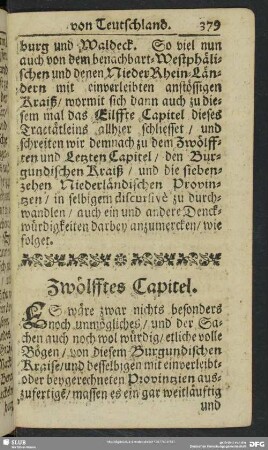 von Teutschland. 379
burg und Waldeck. So viel nun
auch von dem benachbart-Westphäli-
schen und denen Nieder Rhein-Län-
dern mit einverleibten anstössigen
Kraiß/ wormit sich dann auch zu die-
sem mal das Eilffte Capitel dieses
Tractätleins allhier schliesset/ und
schreiten wir demnach zu dem Zwölff-
ten und Letzten Capitel/ den Bur-
gundischen Kraiß/ und die sieben-
zehen Niederländischen Provin-
tzen/ in selbigem discursivè zu durch-
wandlen/ auch ein und andere Denck-
würdigkeiten darbey anzumercken/ wie
folget.
Zwölfftes Capitel.
ES wäre zwar nichts besonders
noch unmögliches/ und der Sa-
chen auch noch wol würdig/ etliche volle
Bögen/ von diesem Burgundischen
Kraise/ und desselbigen mit einverleibt-
oder beygerechneten Provintzien aus-
zufertigẽ/ massen es ein gar weitläufftig
und
SLUB